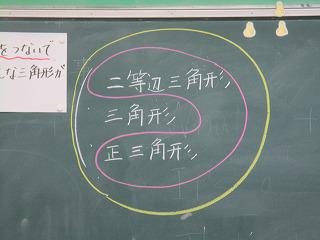 をつないで
な三角形が
二等辺三角形
三角形
正三角形